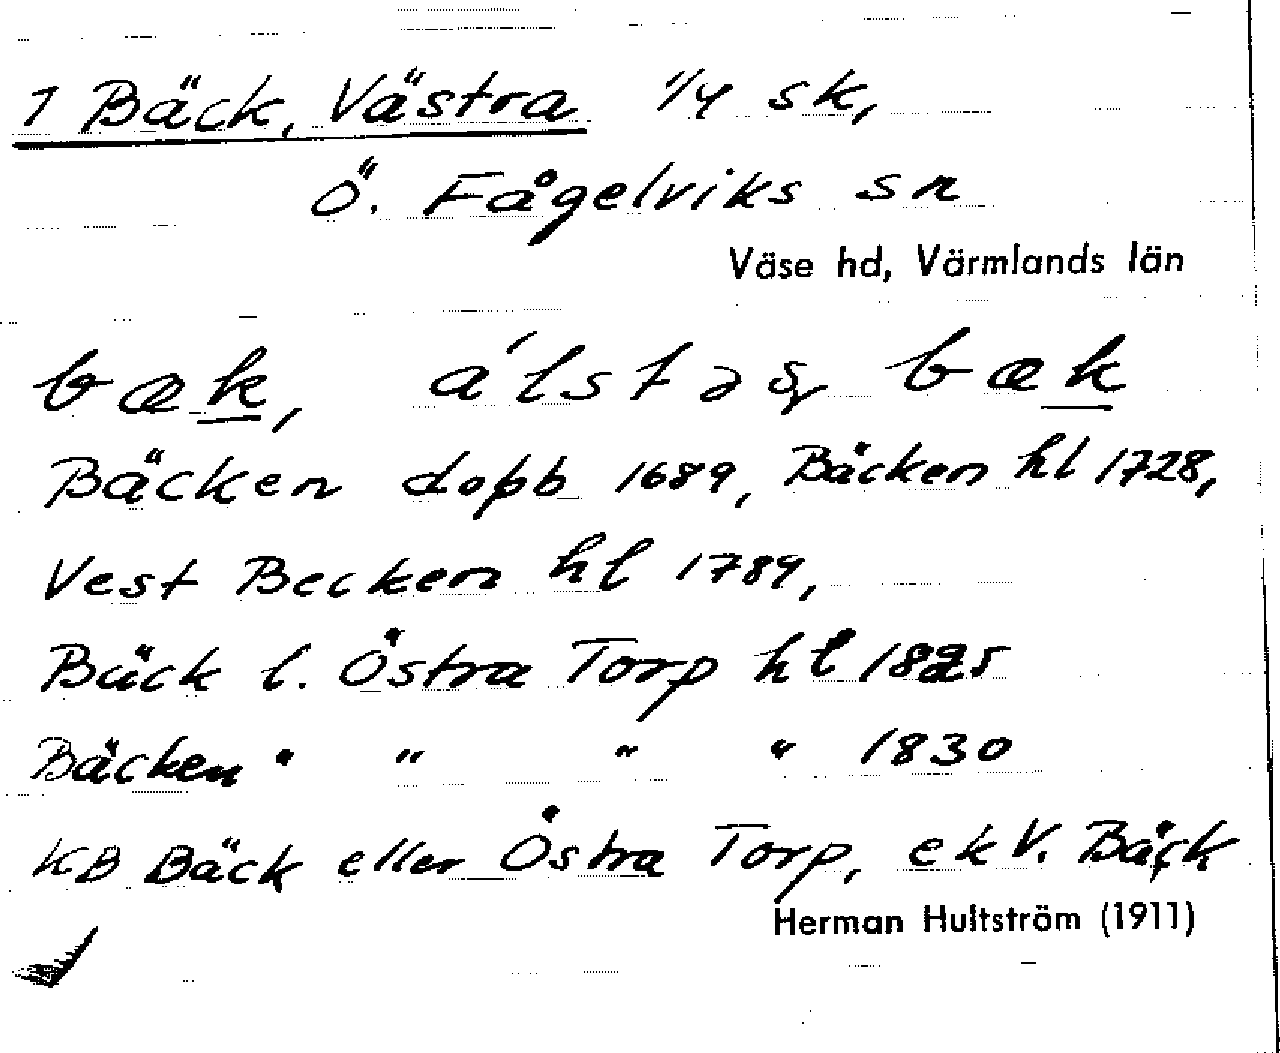 1 Bäck, Västra 1/4 sk,
Ö. Fågelviks sn
Väse hd, Värmlands län
bæk, bæk
Bäcken dopb 1689, Bäcken hl 1728,
Vest Becken hl 1789,
Bäck l. Östra Torp hl 1825
Bäcken " " " " 1830
KB Bäck eller Östra Torp, ek V. Bäck
Herman Hultström (1911)